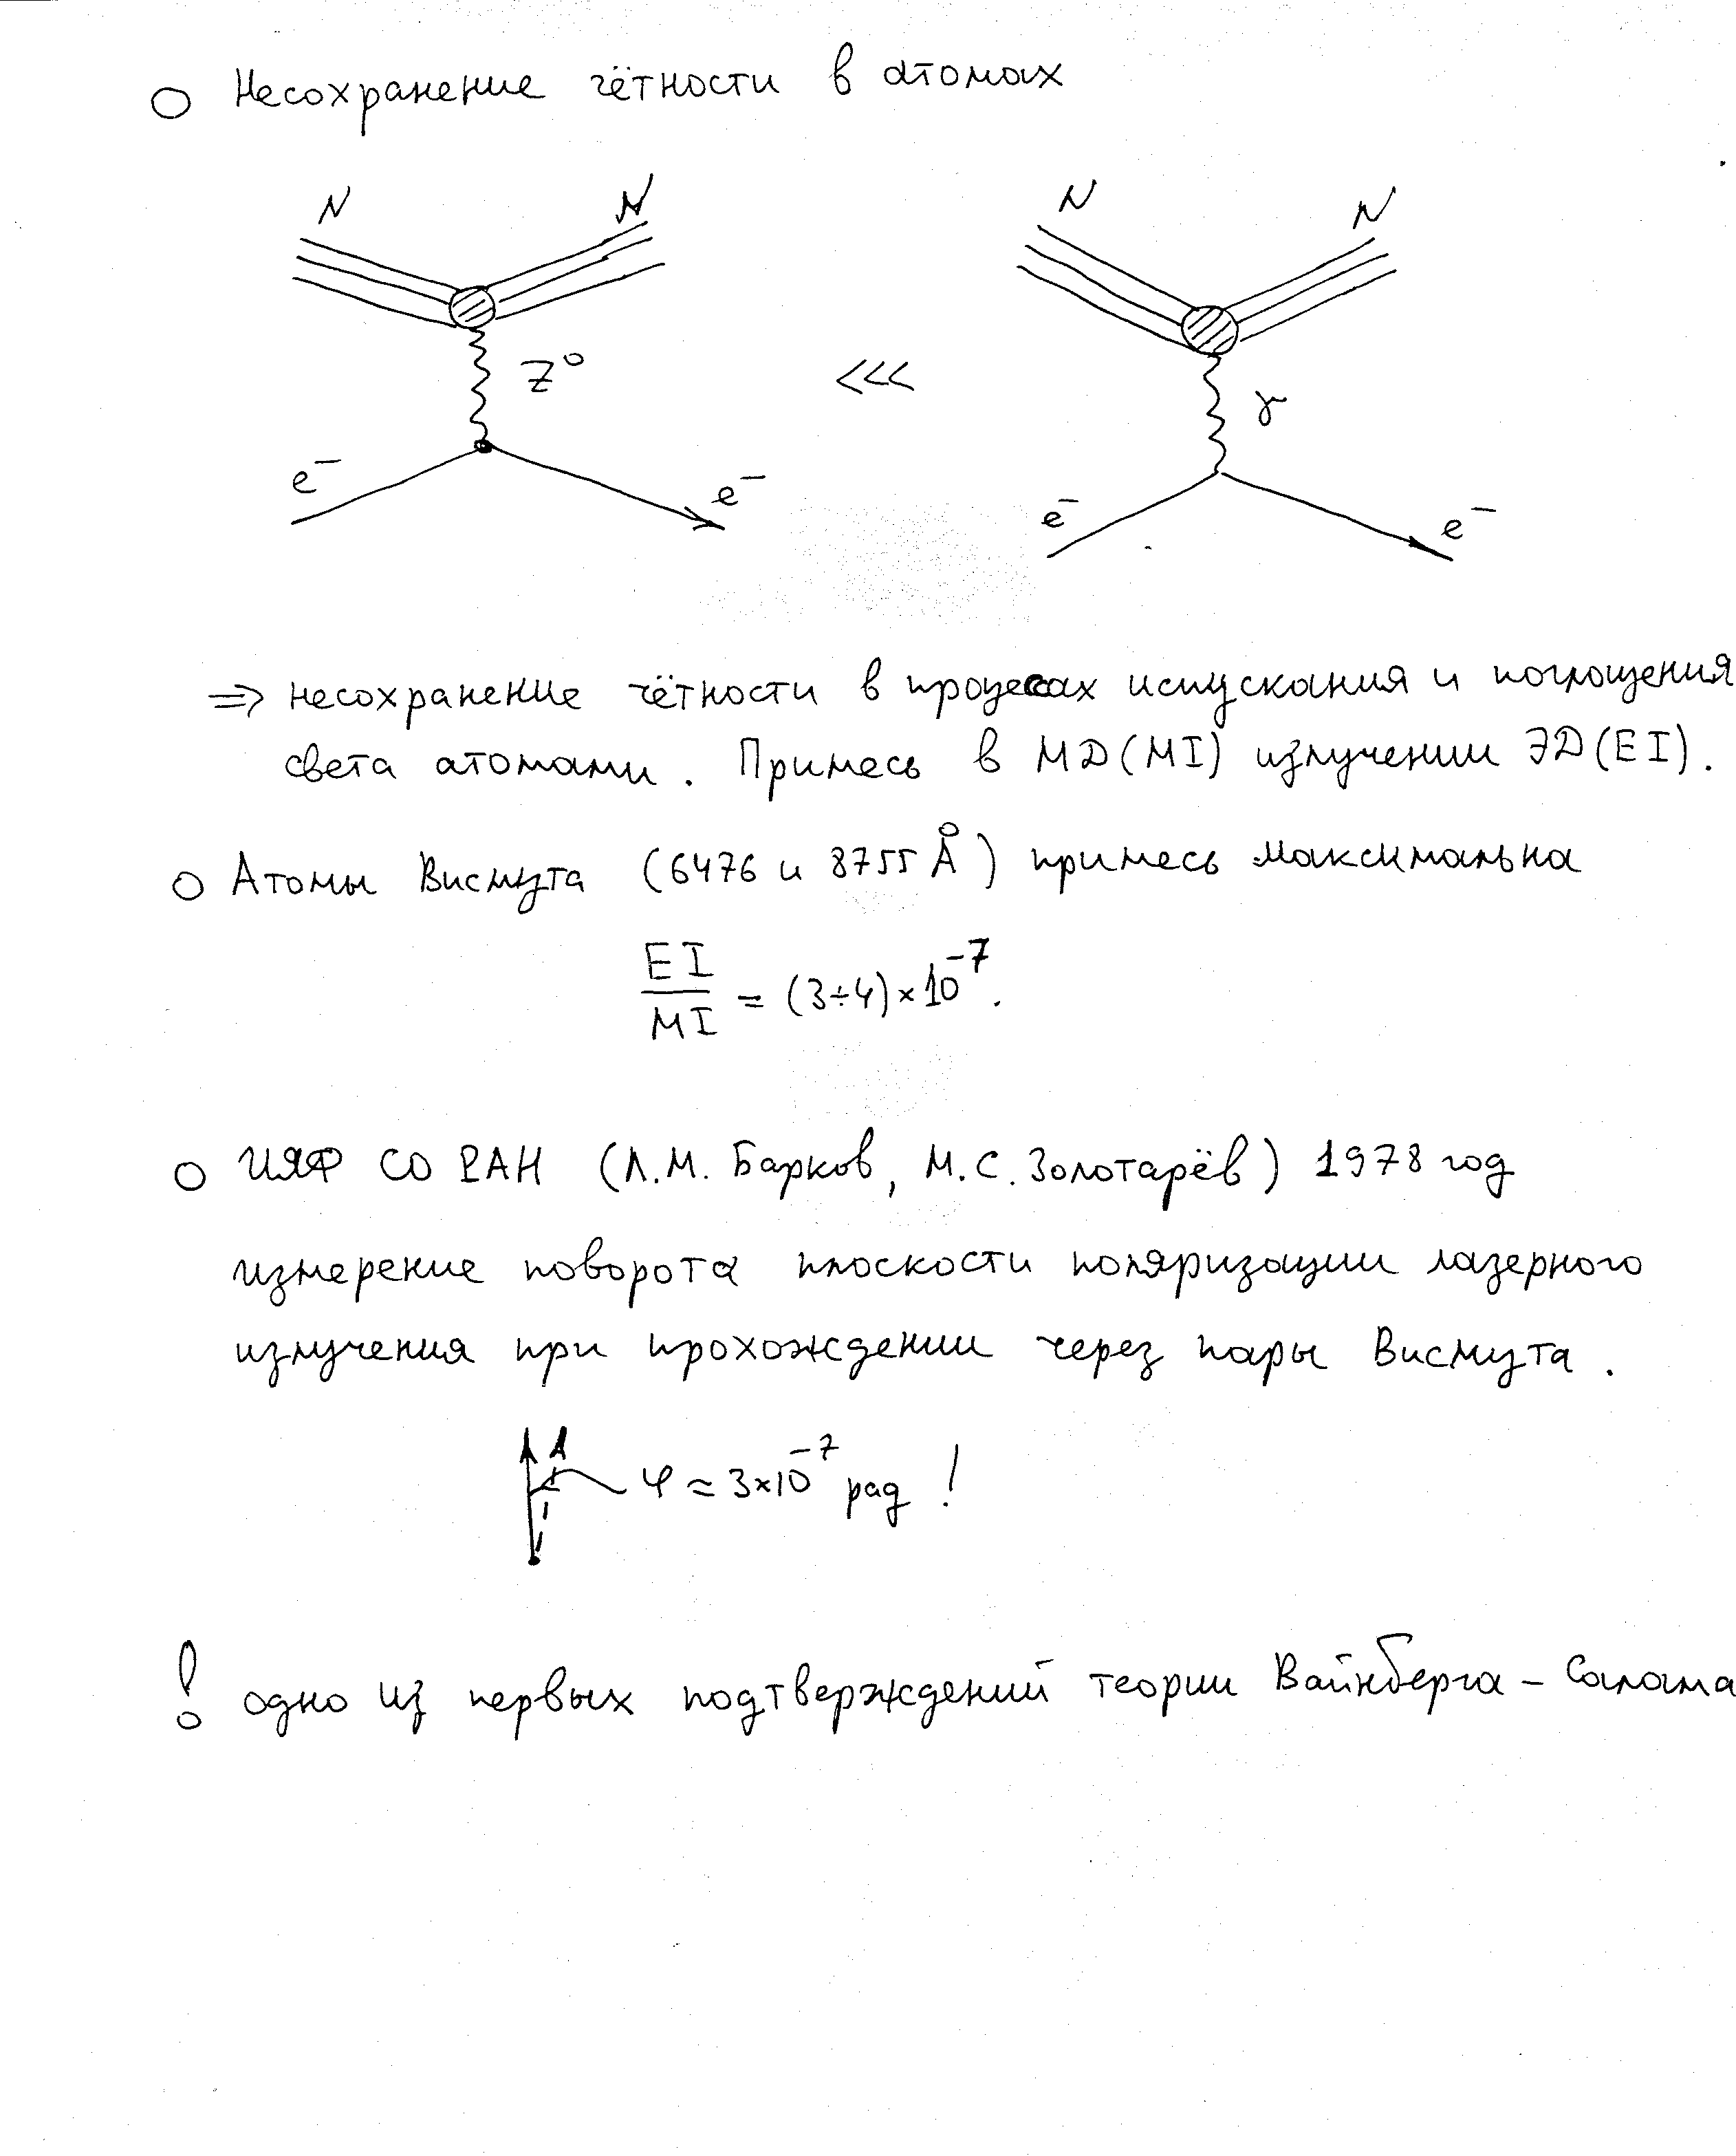 ○ Несохранение чётности в атомах
N N N N
Z⁰ <<< γ
e⁻ e⁻ e⁻ e⁻
=> несохранение чётности в процессах испускания и поглощения
света атомами. Примесь в МД(MI) излучении ЭД(EI).
○ Атомы Висмута (6476 и 8755 Å) примесь максимальна
EI
/ MI = (3÷4)×10⁻⁷.
○ ИЯФ СО РАН (Л.М. Барков, М.С. Золотарёв) 1978 год
измерение поворота плоскости поляризации лазерного
излучения при прохождении через пары Висмута.
φ ≈ 3×10⁻⁷ рад !
! одно из первых подтверждений теории Вайнберга – Салама